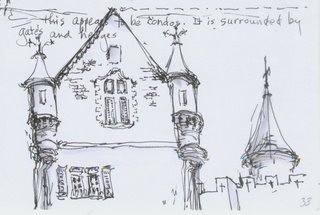 This appears to be condos. It is surrounded by
gates and hedges
33